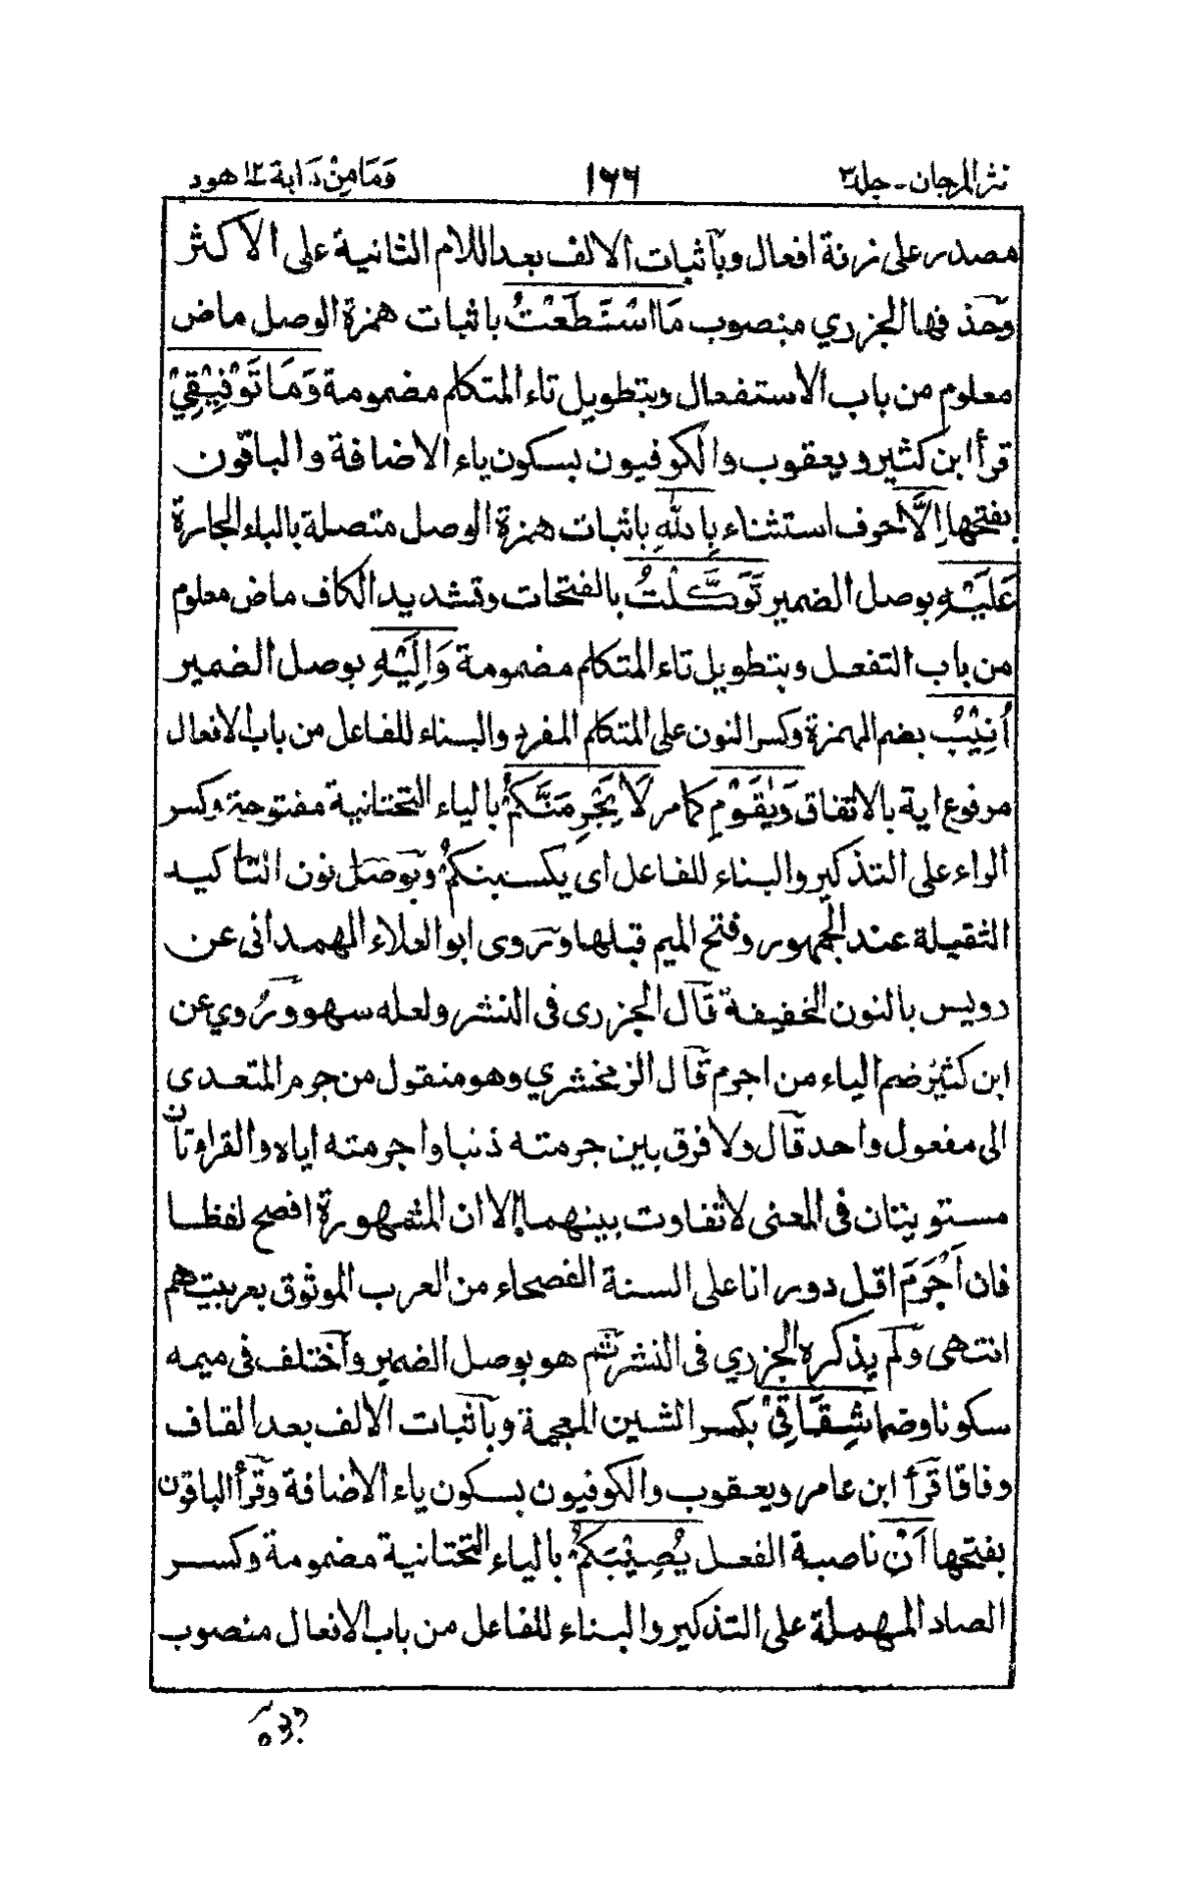 نثر المرجان ـ جلد ٣
١٦٦
وَمَا مِنْ دَابة ١٢ هود
مصدر على زنة افعال وبآثبات الالف بعد اللام الثانية على الاكثر
وحذفها الجزري منصوب مَا اسْتَطَعْتُ باثبات همزة الوصل ماض
معلوم من باب الاستفعال وبتطويل تاء المتكلم مضمومة وَمَا تَوْفِيْقِيْ
قرأ ابن كثير ويعقوب والكوفيون بسكون ياء الاضافة والباقون
بفتحها اِلَّا حرف استثناء بِاللّٰهِ باثبات همزة الوصل متصلة بالباء الجارة
عَلَيْهِ بوصل الضمير تَوَكَّلْتُ بالفتحات وتشديد الكاف ماض معلوم
من باب التفعل وبتطويل تاء المتكلم مضمومة وَاِلَيْهِ بوصل الضمير
اُنِيْبُ بضم الهمزة وكسر النون على المتكلم المفرد والبناء للفاعل من باب الافعال
مرفوع اية بالاتفاق وَيٰقَوْمِ كما مر لَا يَجْرِمَنَّكُمْ بالياء التحتانية مفتوحة وكسر
الراء على التذكير والبناء للفاعل اى يكسبنكم وبوصل نون التاكيد
الثقيلة عند الجمهور وفتح الميم قبلها وروى ابو العلاء الهمدانى عن
رويس بالنون الخفيفة قال الجزرى فى النشر ولعله سهو ورُوي عن
ابن كثير ضم الياء من اجرم قال الزمخشري وهو منقول من جرم المتعدى
الى مفعول واحد قال ولا فرق بين جرمته ذنبا واجرمته اياه والقراءتان
مستويتان فى المعنى لا تفاوت بينهما الا ان المشهورة افصح لفظا
فان اَجْرَمَ اقل دورانا على السنة الفصحاء من العرب الموثوق بعربيتهم
انتهى ولم يذكره الجزري فى النشر ثم هو بوصل الضمير وآختلف فى ميمه
سكونا وضما شِقَاقِيْ بكسر الشين المعجمة وبآثبات الالف بعد القاف
وفاقا قرأ ابن عامر ويعقوب والكوفيون بسكون ياء الاضافة وقرأ الباقون
بفتحها اَنْ ناصبة الفعل يُصِيْبَكُمْ بالياء التحتانية مضمومة وكسر
الصاد المهملة على التذكير والبناء للفاعل من باب الافعال منصوب